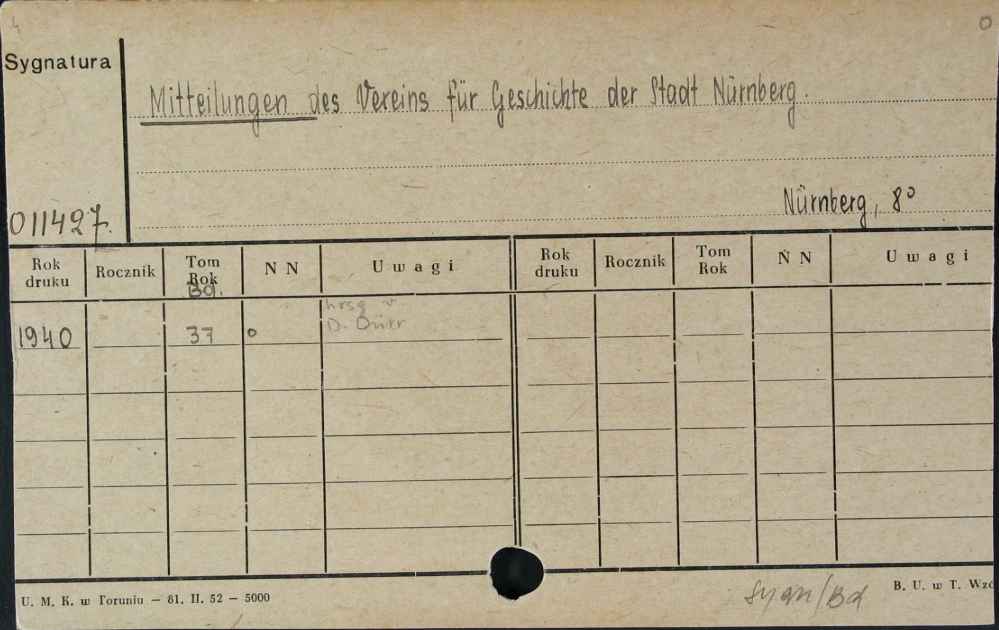 4
O
Sygnatura
Mitteilungen des Vereins für Geschichte der Stadt Nürnberg.
Nürnberg, 8º
011427.
Rok druku Rocznik Tom Rok N N Uwagi Rok druku Rocznik Tom Rok N N Uwagi
Bd.
hrsg v.
1940 37 o D.
U. M. K. w Toruniu — 81. II. 52 — 5000
sygn/Bd
B. U. w T. Wzó